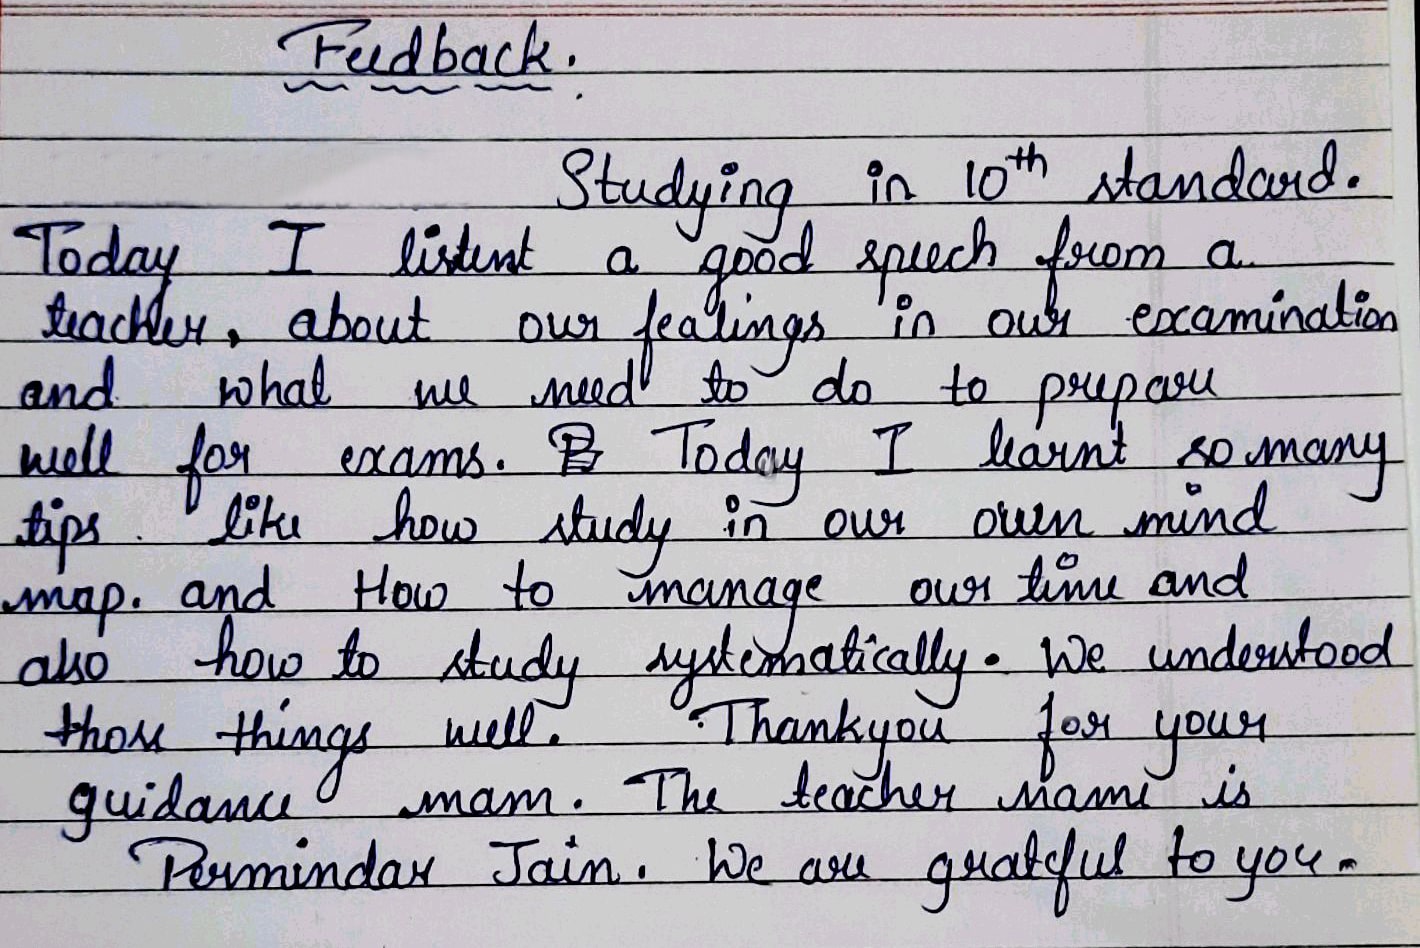 Feedback.
Studying in 10th standard.
Today I listent a good speech from a
teacher, about our fealings in our examination
and what we need to do to prepare
well for exams. Today I learnt so many
tips. like how study in our own mind
map. and How to manage our time and
also how to study systematically. We understood
those things well. Thankyou for your
guidance mam. The teacher name is
Permindar Jain. We are grateful to you.